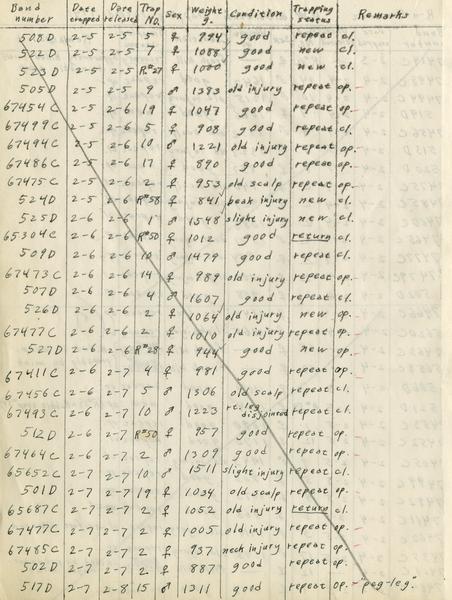 Band number Date trapped Date released Trap No. Sex Weight g. Condition Trapping status Remarks
508D 2-5 2-5 5 ♀ 994 good repeat cl.
522D 2-5 2-5 7 ♀ 1088 good new cl.
523D 2-5 2-5 R#27 ♀ 1000 good new cl.
505D 2-5 2-5 9 ♂ 1383 old injury repeat op.
67454C 2-5 2-6 19 ♀ 1047 good repeat op.
67499C 2-5 2-6 5 ♀ 908 good repeat cl.
67494C 2-5 2-6 10 ♂ 1221 old injury repeat op.
67486C 2-5 2-6 17 ♀ 890 good repeat op.
67475C 2-5 2-6 2 ♀ 953 old scalp repeat op.
524D 2-5 2-6 R#58 ♀ 841 beak injury new cl.
525D 2-6 2-6 1 ♂ 1548 slight injury new cl.
65304C 2-6 2-6 R#50 ♀ 1012 good return cl.
509D 2-6 2-6 10 ♂ 1479 good repeat cl.
67473C 2-6 2-6 14 ♀ 989 old injury repeat op.
507D 2-6 2-6 4 ♂ 1607 good repeat cl.
526D 2-6 2-6 2 ♀ 1064 old injury new op.
67477C 2-6 2-6 2 ♀ 1010 old injury repeat op.
527D 2-6 2-6 R#28 ♀ 944 good new op.
67411C 2-6 2-7 4 ♀ 981 good repeat op.
67456C 2-6 2-7 5 ♂ 1306 old scalp repeat cl.
67493C 2-6 2-7 10 ♂ 1223 rt. leg disjointed repeat cl.
512D 2-6 2-7 R#50 ♀ 957 good repeat op.
67464C 2-6 2-7 2 ♂ 1309 good repeat op.
65652C 2-7 2-7 10 ♂ 1511 slight injury repeat cl.
501D 2-7 2-7 19 ♀ 1034 old scalp repeat op.
65687C 2-7 2-7 2 ♀ 1052 old injury return cl.
67477C 2-7 2-7 2 ♀ 1005 old injury repeat op.
67485C 2-7 2-7 2 ♀ 937 neck injury repeat op.
502D 2-7 2-7 2 ♀ 887 good repeat op.
517D 2-7 2-8 15 ♂ 1311 good repeat op. "peg-leg."